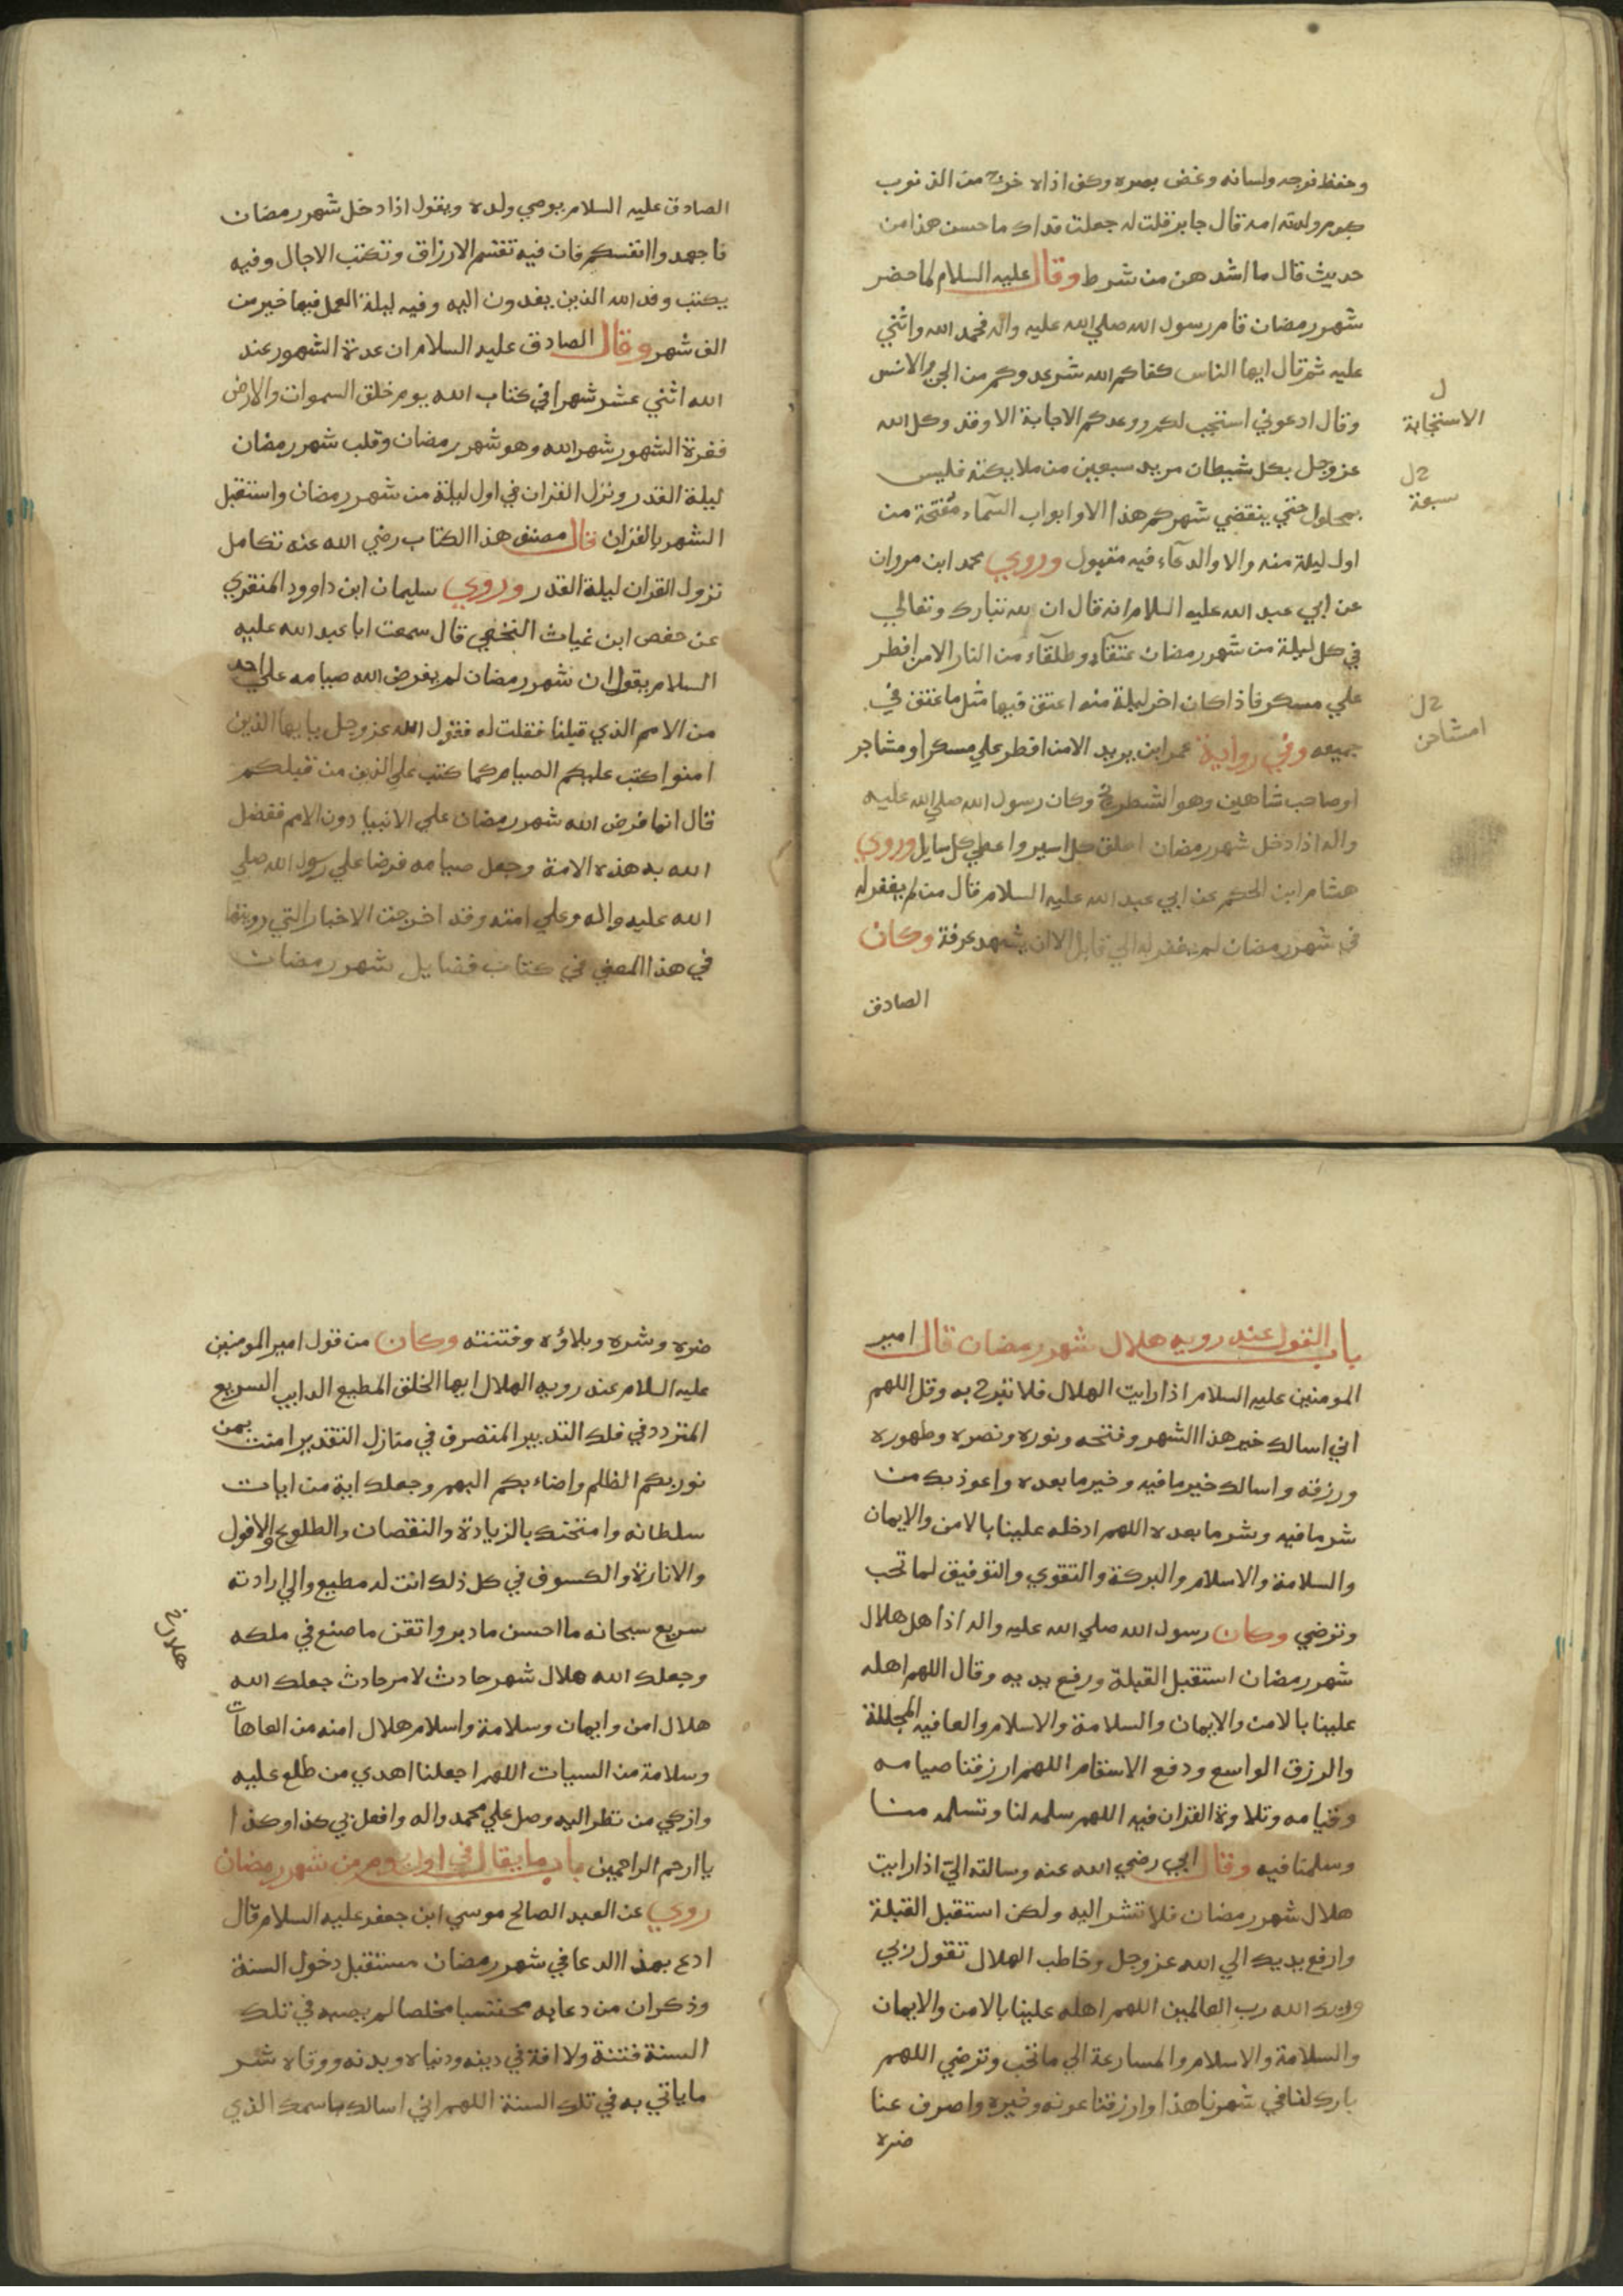 وحفظ فرجه ولسانه وغض بصره وكف اذاه خرج من الذنوب
كيوم ولدته امه قال جابر قلت له جعلت فداك ما احسن هذا من
حديث قال ما اشد هن من شرط وقال عليه السلام لما حضر
شهر رمضان قام رسول الله صلي الله عليه واله فحمد الله واثني
عليه ثم قال ايها الناس كفاكم الله شر عدوكم من الجن والانس
وقال ادعوني استجب لكم ووعدكم الاجابة الا وقد وكل الله
ل
الاستجابة
عز وجل بكل شيطان مريد سبعين من ملايكته فليس
سبعة
بمحلول حتي ينقضي شهركم هذا الا وابواب السماء مفتحة من
اول ليلة منه والا والدعاء فيه مقبول وروي محمد ابن مروان
عن ابي عبد الله عليه السلام انه قال ان لله تبارك وتعالي
في كل ليلة من شهر رمضان عتقاء وطلقاء من النار الا من افطر
علي مسكر فاذا كان اخر ليلة منه اعتق فيها مثل ما عتق في
جميعه وفي رواية عمر ابن يزيد الا من افطر علي مسكر او مشاجر
او مشاحن
او صاحب شاهين وهو الشطرنج وكان رسول الله صلي الله عليه
واله اذا دخل شهر رمضان اطلق كل اسير واعطي كل سايل وروي
هشام ابن الحكم عن ابي عبد الله عليه السلام قال من لم يغفر له
في شهر رمضان لم يغفر له الي قابل الا ان يشهد عرفة وكان
الصادق
الصادق عليه السلام يوصي ولده ويقول اذا دخل شهر رمضان
فاجهدوا انفسكم فان فيه تقسم الارزاق وتكتب الاجال وفيه
يكتب وفد الله الذين يفدون اليه وفيه ليلة العمل فيها خير من
الف شهر وقال الصادق عليه السلام ان عدة الشهور عند
الله اثني عشر شهرا في كتاب الله يوم خلق السموات والارض
فغرة الشهور شهر الله وهو شهر رمضان وقلب شهر رمضان
ليلة القدر ونزل القران في اول ليلة من شهر رمضان واستقبل
الشهر بالقران قال مصنف هذا الكتاب رضي الله عنه تكامل
نزول القران ليلة القدر وروي سليمان ابن داوود المنقري
عن حفص ابن غياث النخعي قال سمعت ابا عبد الله عليه
السلام يقول ان شهر رمضان لم يفرض الله صيامه علي احد
من الامم الذي قبلنا فقلت له فقول الله عز وجل يا يها الذين
امنوا كتب عليكم الصيام كما كتب علي الذين من قبلكم
قال انما فرض الله شهر رمضان علي الانبيا دون الامم ففضل
الله به هذه الامة وجعل صيامه فرضا علي رسول الله صلي
الله عليه واله وعلي امته وقد اخرجت الاخبار التي رويتها
في هذا المعني في كتاب فضايل شهر رمضان
باب القول عند رويه هلال شهر رمضان قال امير
المومنين عليه السلام اذا رايت الهلال فلا تبرح به وقل اللهم
اني اسالك خير هذا الشهر وفتحه ونوره ونصره وطهوره
ورزقه واسالك خير ما فيه وخير ما بعده واعوذ بك من
شر ما فيه وشر ما بعده اللهم ادخله علينا بالامن والايمان
والسلامة والاسلام والبركة والتقوي والتوفيق لما تحب
وترضي وكان رسول الله صلي الله عليه واله اذا اهل هلال
شهر رمضان استقبل القبلة ورفع يديه وقال اللهم اهله
علينا بالامن والايمان والسلامة والاسلام والعافيه المجللة
والرزق الواسع ودفع الاسقام اللهم ارزقنا صيامه
وقيامه وتلاوة القران فيه اللهم سلمه لنا وتسلمه منا
وسلمنا فيه وقال ابي رضي الله عنه رسالته الي اذا رايت
هلال شهر رمضان فلا تشر اليه ولكن استقبل القبلة
وارفع يديك الي الله عز وجل وخاطب الهلال تقول ربي
وربك الله رب العالمين اللهم اهله علينا بالامن والايمان
والسلامة والاسلام والمسارعة الي ما تحب وترضي اللهم
بارك لنا في شهرنا هذا وارزقنا عونه وخيره واصرف عنا
ضره
ضره وشره وبلاؤه وفتنته وكان من قول امير المومنين
عليه السلام عند رويه الهلال ايها الخلق المطيع الدايب السريع
المتردد في فلك التدبير المتصرف في منازل التقدير امنت بمن
نور بكم الظلم واضاء بكم البهم وجعلك اية من ايات
سلطانه وامتحنك بالزيادة والنقصان والطلوع والافول
والانارة والكسوف في كل ذلك انت له مطيع والي ارادته
سريع سبحانه ما احسن ما دبر واتقن ما صنع في ملكه
وجعلك الله هلال شهر حادث لامر حادث جعلك الله
هلال امن وايمان وسلامة واسلام هلال امنه من العاهات
وسلامة من السيات اللهم اجعلنا اهدي من طلع عليه
وازكي من نظر اليه وصل علي محمد واله وافعل بي كذا وكذا
يا ارحم الراحمين باب ما يقال في اول يوم من شهر رمضان
روي عن العبد الصالح موسي ابن جعفر عليه السلام قال
ادع بهذا الدعا في شهر رمضان مستقبل دخول السنة
وذكر ان من دعا به محتسبا مخلصا لم يصبه في تلك
السنة فتنة ولا افة في دينه ودنياه وبدنه ووقاه شر
ما ياتي به في تلك السنة اللهم اني اسالك باسمك الذي